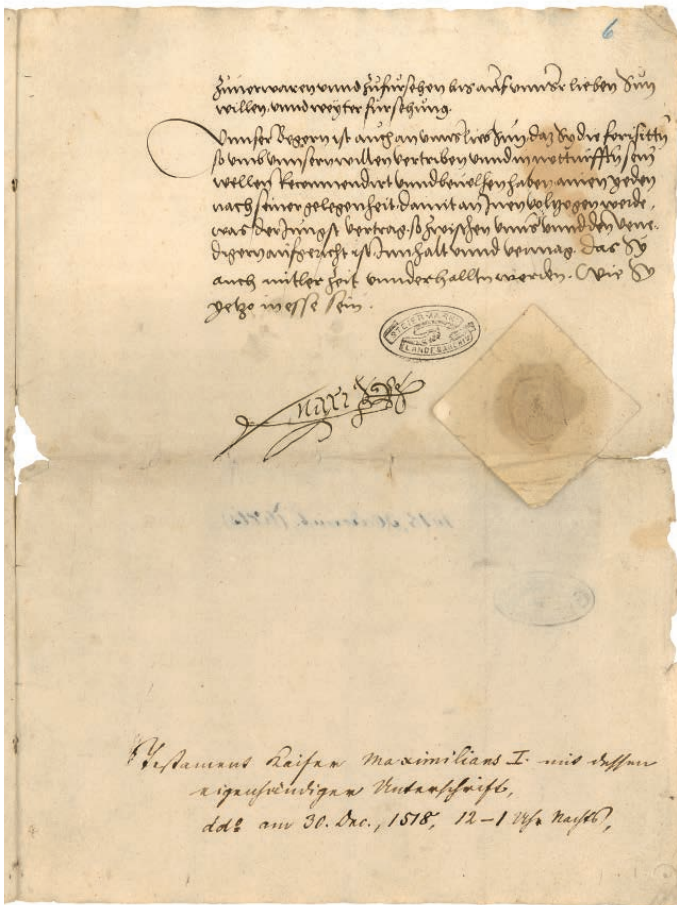 6
zuuerwaren vnnd zufürsehen bis auf vnnsr lieben Sün
willen, vnnd weyter fürsehung.
Vnnser Begern ist auch an vnns lieb Sün, daz Sy die
so vmb vnnsern willen vertriben vnnd in notturfften sein
wellen Recommendirt vnnd beuolhen haben ainen yeden
nach seiner gelegenheit, damit an Inen volzogen werde,
was der Jungst vertrag so zwischen vnns vnnd den Vene-
digern aufgericht ist, Innhalt vnnd vermag. Das Sy
auch mitler zeit vnnderhalltn werden. Wie Sy
yetzo in esse sein.
STEIERMÄRK.
LANDESARCHIV
Maxi
Testament Kaiser Maximilians I. mit dessen
eigenhändiger Unterschrift,
ddo am 30. Dec., 1518, 12–1 Uhr Nachts,